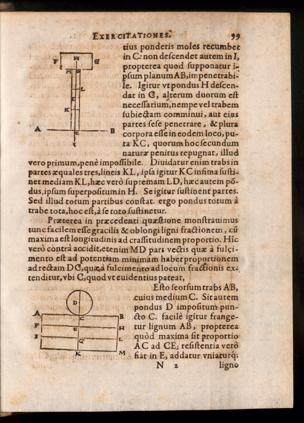 EXERCITATIONES. 99
tius ponderis moles recumbet
in C: non descendet autem in I,
propterea quod supponatur i-
psum planum AB, impenetrabi-
le. Igitur vt pondus H descen-
dat in C, alterum duorum est
necessarium, nempe vel trabem
subiectam comminui, aut eius
partes sese penetrare, & plura
corpora esse in eodem loco, pu-
ta KC, quorum hoc secundum
naturæ penitus repugnat, illud
vero primum, penè impossibile. Diuidatur enim trabs in
partes æquales tres, lineis KL, ipsa igitur KC infima susti-
net mediam KL, hæc verò supremam LD, hæc autem pō-
dus, ipsum superpositum in H. Se igitur sustinent partes.
Sed illud totum partibus constat. ergo pondus totum à
trabe tota, hoc est, à se toto sustinetur.
Præterea in præcedenti quæstione monstrauimus
tunc facilem esse gracilis & oblongi ligni fractionem, cū
maxima est longitudinis ad crassitudinem proportio. Hic
verò contrà accidit, etenim MD pars vectis quæ à fulci-
mento est ad potentiam minimam haber proportionem
ad rectam DC, quæ à fulcimento ad locum fractionis ex-
tenditur, vbi C. quod vt euidentius pateat,
Esto seorsum trabs AB,
cuius medium C. Sit autem
pondus D impositum pun-
cto C. facilè igitur frange-
tur lignum AB, propterea
quòd maxima sit proportio
AC ad CE; resistentia verò
fiat in E, addatur vniaturq;
N 2 ligno
F M G
D
L
E
K
A B
C
I
D
A C B
F E H
I G L
K M